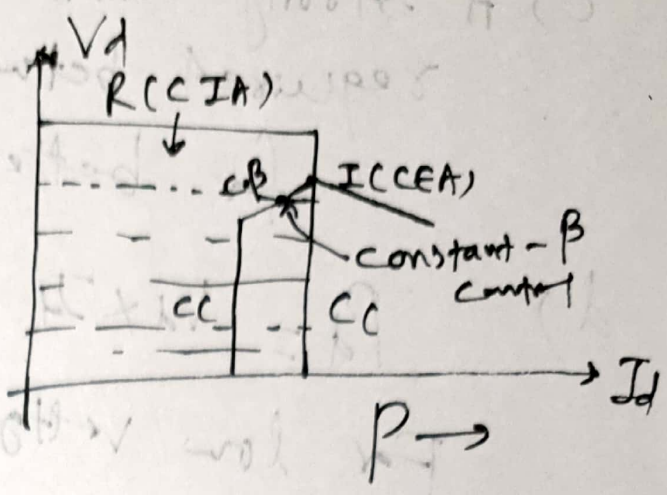 Vd
R(CIA)
Cβ
I(CEA)
constant-β
control
CC
CC
Id
P→